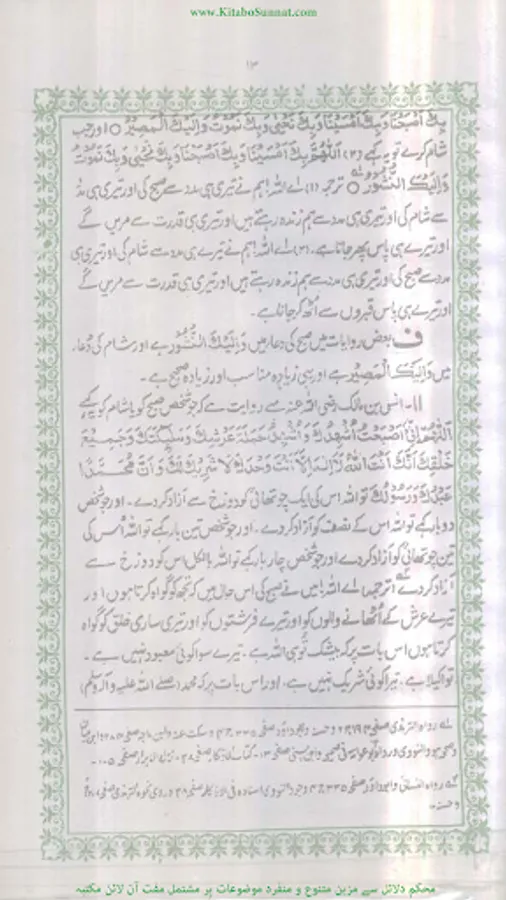 www.KitaboSunnat.com
۱۳
بِكَ اَصْبَحْنَا وَبِكَ اَمْسَيْنَا وَبِكَ نَحْيٰى وَبِكَ نَمُوْتُ وَاِلَيْكَ الْمَصِيْرُ ○ اور جب
شام کرے تو یہ کہے (۲) اَللّٰهُمَّ بِكَ اَمْسَيْنَا وَبِكَ اَصْبَحْنَا وَبِكَ نَحْيٰى وَبِكَ نَمُوْتُ
وَاِلَيْكَ النُّشُوْرُ ○ ترجمہ (۱) اے اللہ! ہم نے تیری ہی مدد سے صبح کی اور تیری ہی مدد
سے شام کی اور تیری ہی مدد سے ہم زندہ رہتے ہیں اور تیری ہی قدرت سے مریں گے
اور تیرے ہی پاس پھر جانا ہے۔ (۲) اے اللہ! ہم نے تیرے ہی مدد سے شام کی اور تیری ہی
مدد سے صبح کی اور تیری ہی مدد سے ہم زندہ رہتے ہیں اور تیری ہی قدرت سے مریں گے
اور تیرے ہی پاس قبروں سے اُٹھ کر جانا ہے۔
ف بعض روایات میں صبح کی دعا میں وَاِلَيْكَ النُّشُوْرُ ہے اور شام کی دعا
میں وَاِلَيْكَ الْمَصِيْرُ ہے اور یہی زیادہ مناسب اور زیادہ صحیح ہے۔
۱۱۔ انس بن مالک رضی اللہ عنہ سے روایت ہے کہ جو شخص صبح کو یا شام کو کہے
اَللّٰهُمَّ اِنِّىْ اَصْبَحْتُ اُشْهِدُكَ وَاُشْهِدُ حَمَلَةَ عَرْشِكَ وَمَلٰئِكَتَكَ وَجَمِيْعَ
خَلْقِكَ اَنَّكَ اَنْتَ اللّٰهُ لَا اِلٰهَ اِلَّا اَنْتَ وَحْدَكَ لَا شَرِيْكَ لَكَ وَاَنَّ مُحَمَّدًا
عَبْدُكَ وَرَسُوْلُكَ تو اللہ اس کی ایک چوتھائی کو دوزخ سے آزاد کردے۔ اور جو شخص
دو بار کہے تو اللہ اس کے نصف کو آزاد کردے۔ اور جو شخص تین بار کہے تو اللہ اُس کی
تین چوتھائی کو آزاد کردے اور جو شخص چار بار کہے تو اللہ بالکل اس کو دوزخ سے
آزاد کردے ترجمہ اے اللہ! میں نے صبح کی اس حال میں کہ تجھ کو گواہ کرتا ہوں اور
تیرے عرش کے اُٹھانے والوں کو اور تیرے فرشتوں کو اور تیری ساری خلق کو گواہ
کرتا ہوں اس بات پر کہ بیشک تُو ہی اللہ ہے۔ تیرے سوا کوئی معبود نہیں ہے۔
تو اکیلا ہے۔ تیرا کوئی شریک نہیں ہے۔ اور اس بات پر کہ محمد (صلے اللہ علیہ و آلہ وسلم)
محکم دلائل سے مزین متنوع و منفرد موضوعات پر مشتمل مفت آن لائن مکتبہ